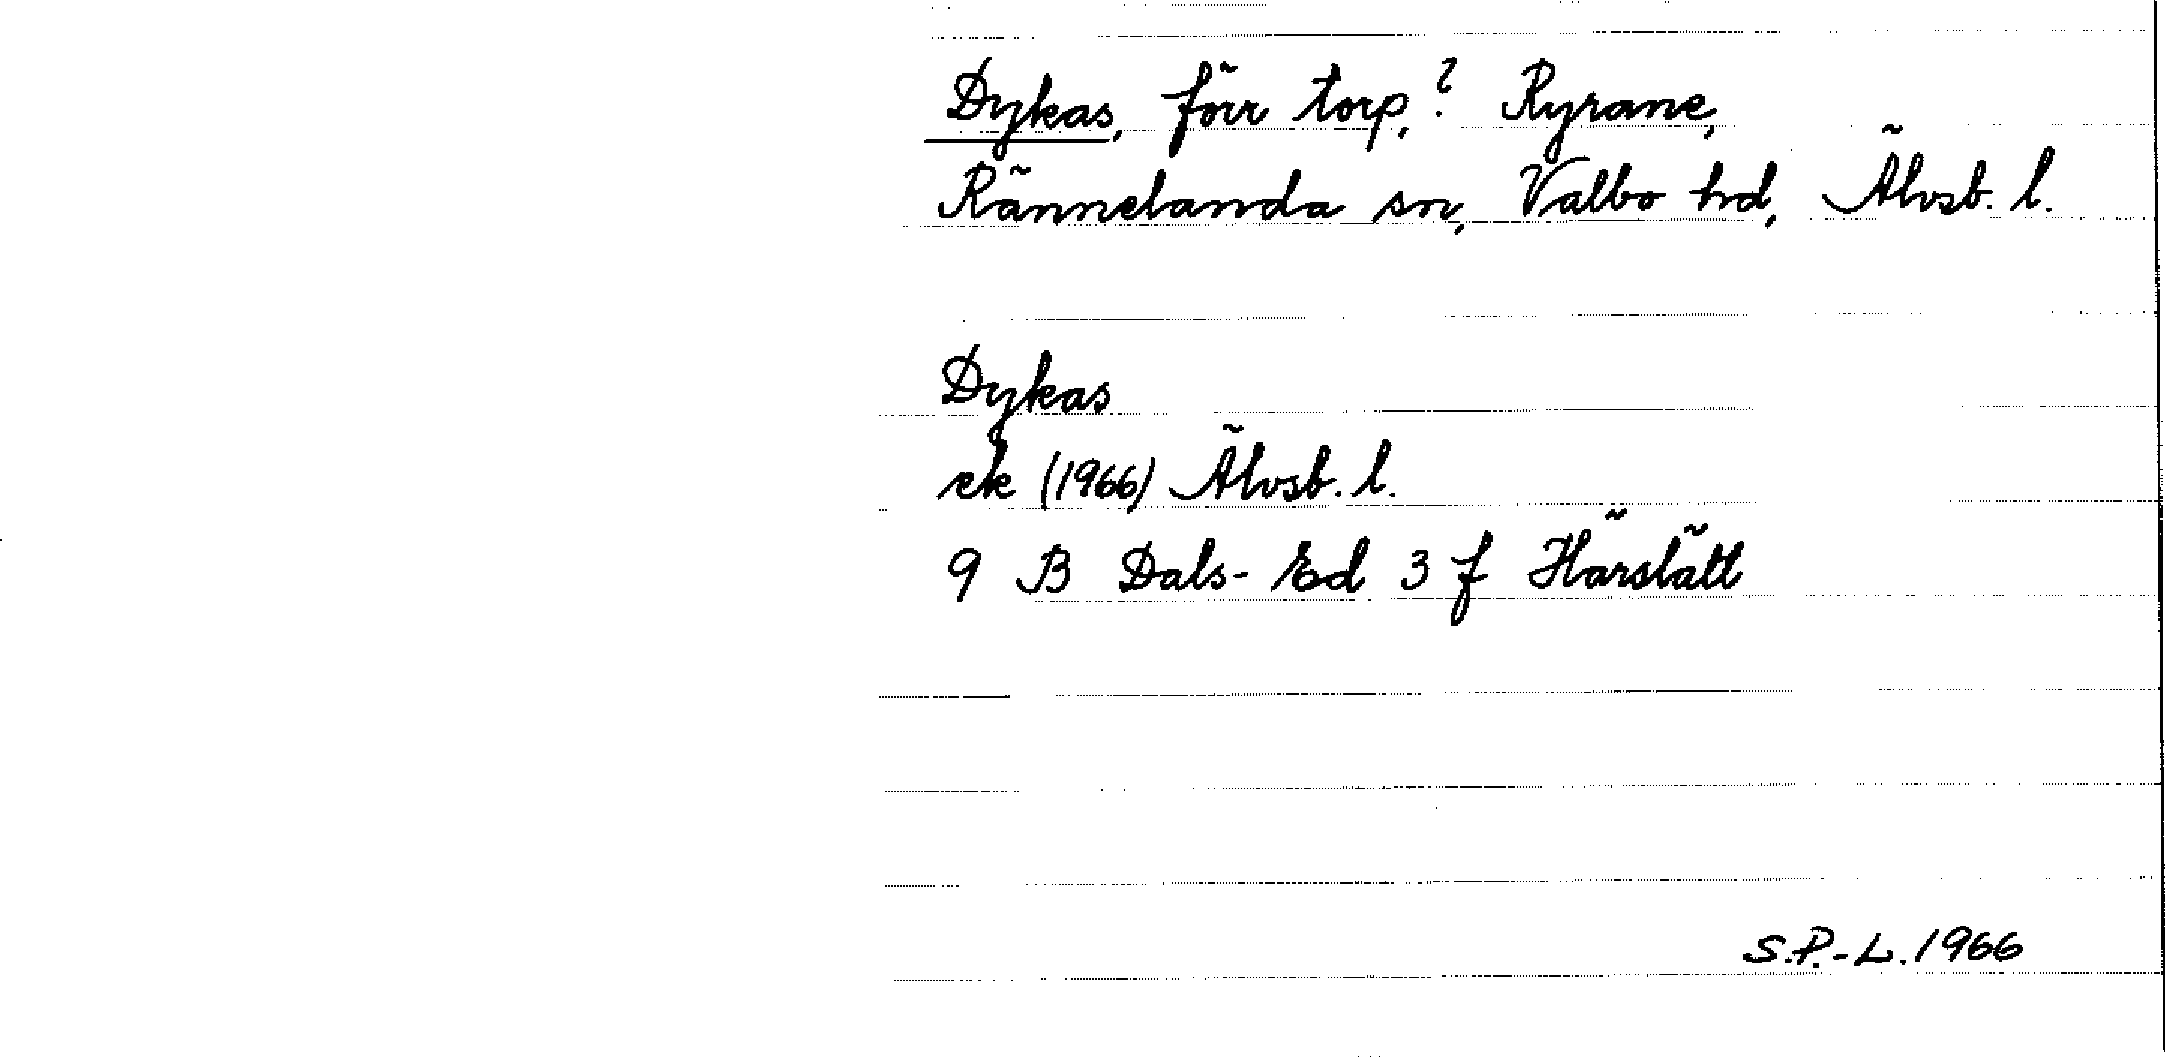 Dykas, förr torp,? Ryrane,
Rännelanda sn, Valbo hd, Älvsb. l.
Dykas
ek (1966) Älvsb. l.
9 B Dals-Ed 3 f Härslätt
S.P.-L. 1966